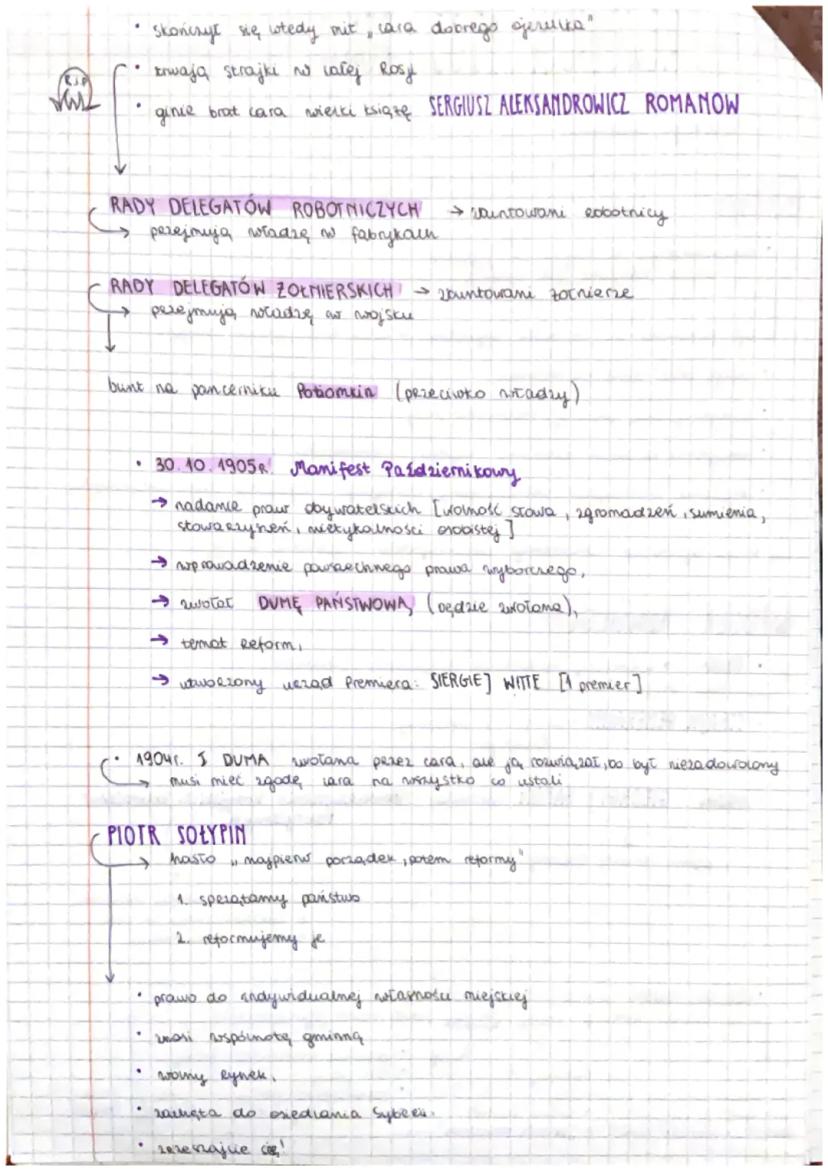 • skończył się wtedy mit „cara dobrego ojczulka"
R.I.P
• trwają strajki w całej Rosji
• ginie brat cara wielki książę SERGIUSZ ALEKSANDROWICZ ROMANOW
RADY DELEGATÓW ROBOTNICZYCH → zbuntowani robotnicy
→ przejmują władzę w fabrykach
RADY DELEGATÓW ŻOŁNIERSKICH → zbuntowani żołnierze
→ przejmują władzę w wojsku
bunt na pancerniku Potiomkin (przeciwko władzy)
• 30.10.1905R. Manifest Październikowy
→ nadanie praw obywatelskich [wolność słowa, zgromadzeń, sumienia,
stowarzyszeń, nietykalności osobistej]
→ wprowadzenie powszechnego prawa wyborczego,
→ zwołał DUMĘ PAŃSTWOWĄ (będzie zwołana),
→ temat reform,
→ utworzony urząd Premiera: SIERGIEJ WITTE [1 premier]
• 1904r. I DUMA zwołana przez cara, ale ją rozwiązał, bo był niezadowolony
→ musi mieć zgodę cara na wszystko co ustali
PIOTR SOŁYPIN
→ hasło „najpierw porządek, potem reformy"
1. sprzątamy państwo
2. reformujemy je
• prawo do indywidualnej własności miejskiej
• znosi wspólnotę gminną
• wolny rynek,
• zachęta do osiedlania Syberii.
• zrzeszajcie się!